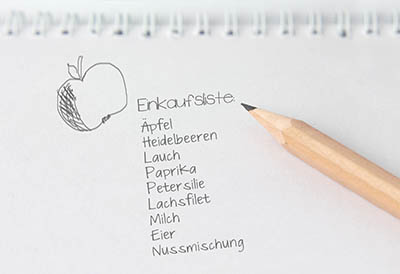 Einkaufsliste:
Äpfel
Heidelbeeren
Lauch
Paprika
Petersilie
Lachsfilet
Milch
Eier
Nussmischung